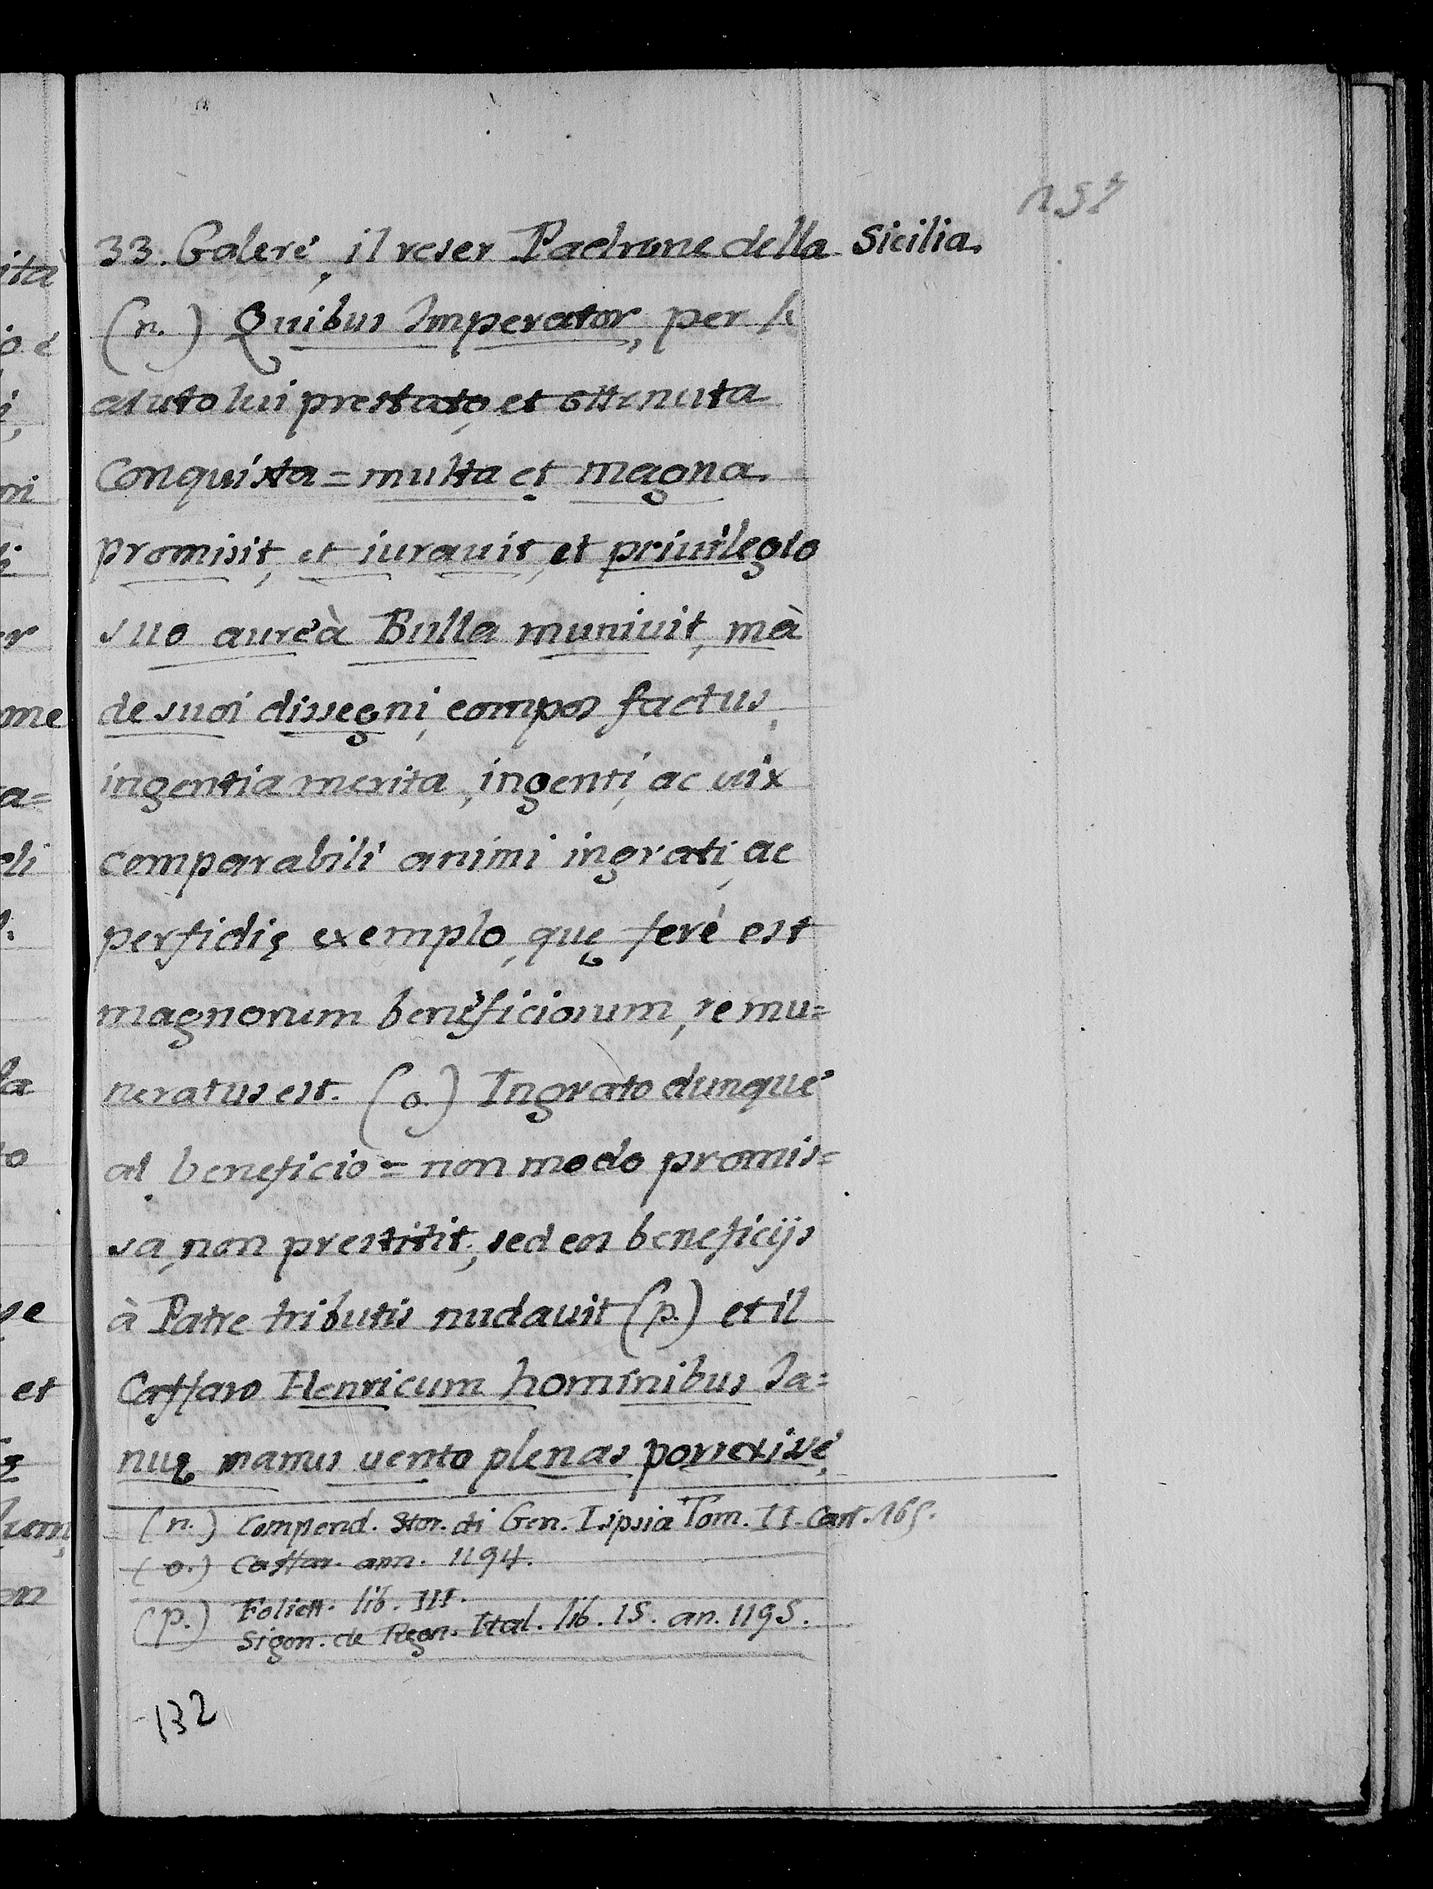 33. Galere, il reser Padrone della Sicilia.
(n.) Quibus Imperator, per l'
aiuto lui prestato, et ottenuta
Conquista = multa et magna
promisit, et iurauit, et priuilegio
suo aureà Bulla muniuit, mà
de suoi dissegni, compos factus,
ingentia merita, ingenti, ac uix
comparabili animi ingrati, ac
perfidię exemplo, quę ferè est
magnorum beneficiorum, remu=
neratus est. (o.) Ingrato dunque
al beneficio = non modo promis=
sa, non prestitit, sed eos beneficijs
à Patre tributis nudauit (p.) et il
Caffaro Henricum hominibus Ia=
nuę manus uento plenas porrexisse,
(n.) Compend. Stor. di Gen. Lipsia Tom. II. Cart. 165.
(o.) Caffar. ann. 1194.
(p.) Foliett. lib. III.
Sigon. de Regn. Ital. lib. 15. an. 1195.
132